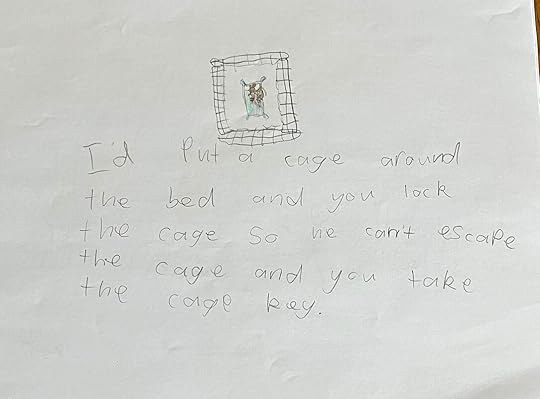 I'd Put a cage around
the bed and you lock
the cage so he can't escape
the cage and you take
the cage key.